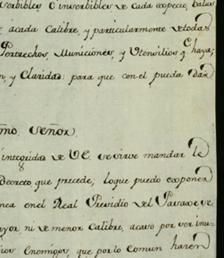 servibles ô inservibles de cada especie, balas
de acada Calibre, y particularmente de todas
Pertrechos, Municiones, y Utensilios q.e haya;
n, y Claridad; para que con el pueda dar
mo. Señor.
integridad de VE se sirve mandar le
Decreto que precede; loque puedo exponer
nea en el Real Presidio del
yor ni de menor Calibre, acaso por ser
Enemigos, que por lo comun haren